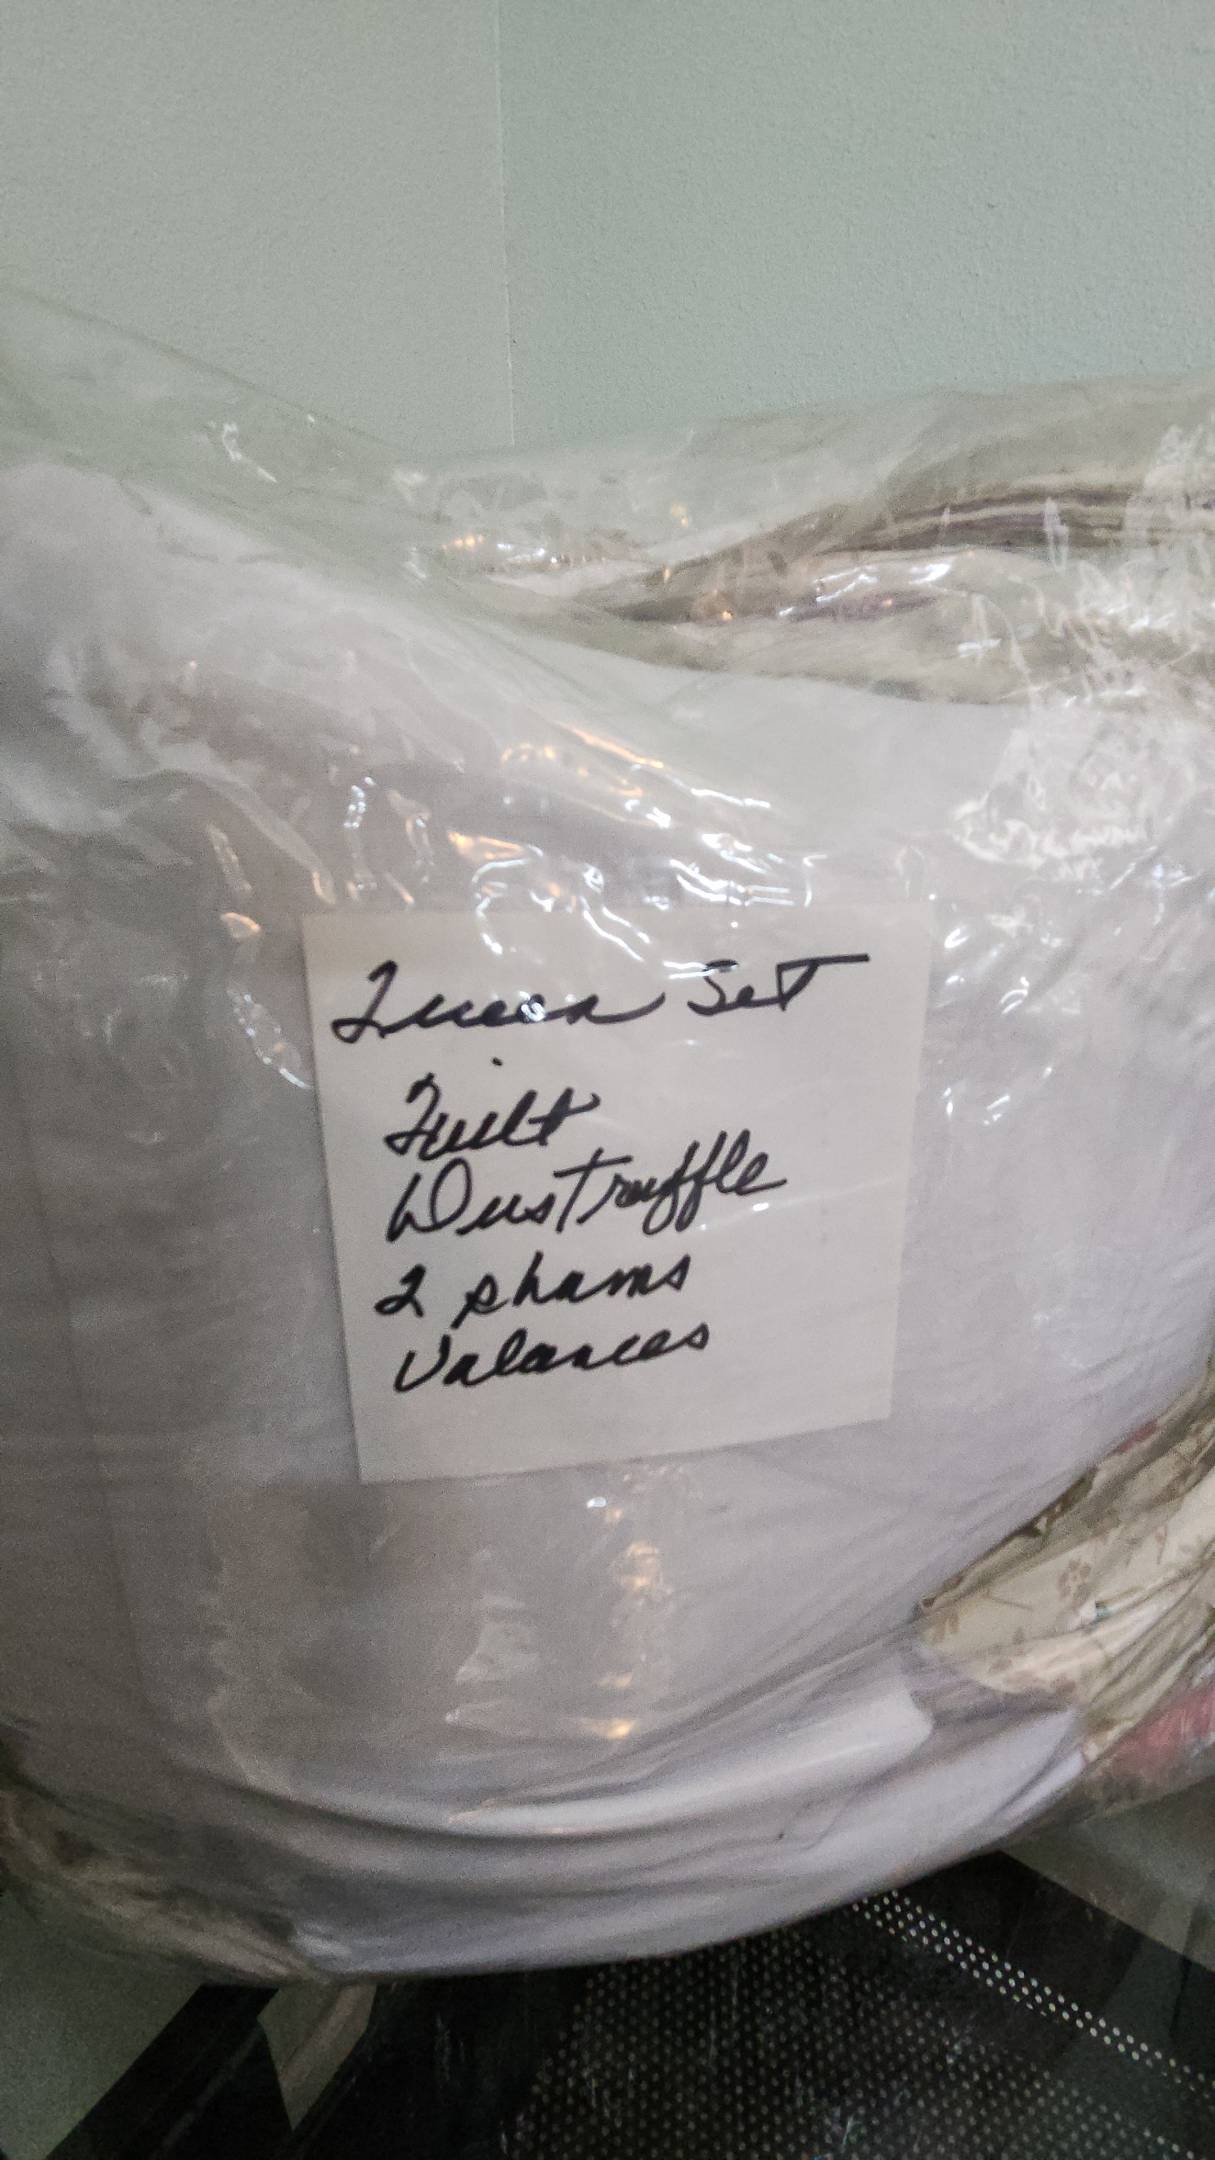 Queen Set
Quilt
Dustruffle
2 shams
Valances